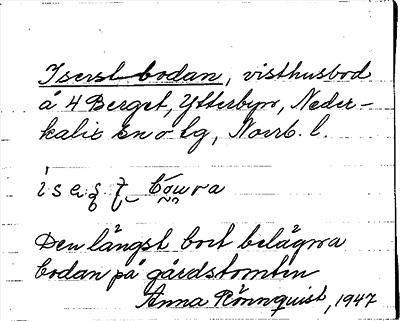 Iserst bodan, visthusbod
å 4 Berget, Ytterbyn, Neder-
kalix sn o tg, Norrb. l.
Den längst bort belägna
bodan på gårdstomten
Anna Rönnquist, 1947